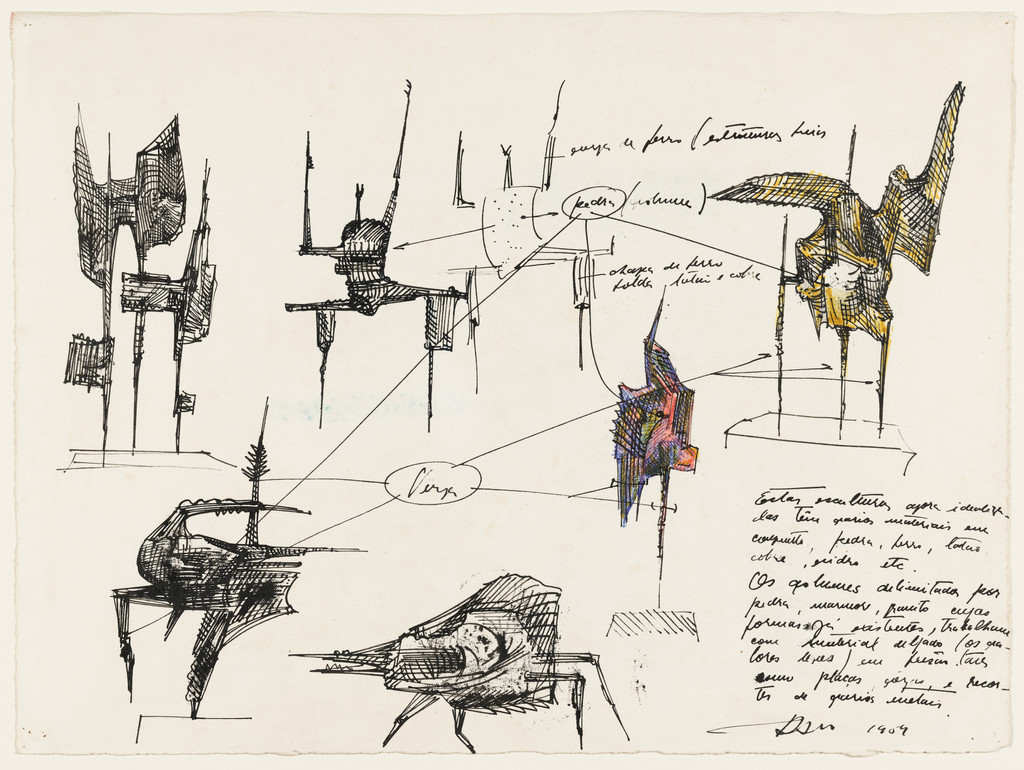 verga de ferro (estruturas
pedra (volume)
chapa de ferro
solda latão e cobre
Verga
Estas esculturas agora idealiza-
das têm varios materiais em
conjunto, pedra, ferro, latão
cobre, vidro etc.
Os volumes delimitados por
pedra, marmore, granito cujas
formas já existentes, trabalham
com material delgado (os va-
lores leves) em
como placas e recor-
tes de varios metais.
1959